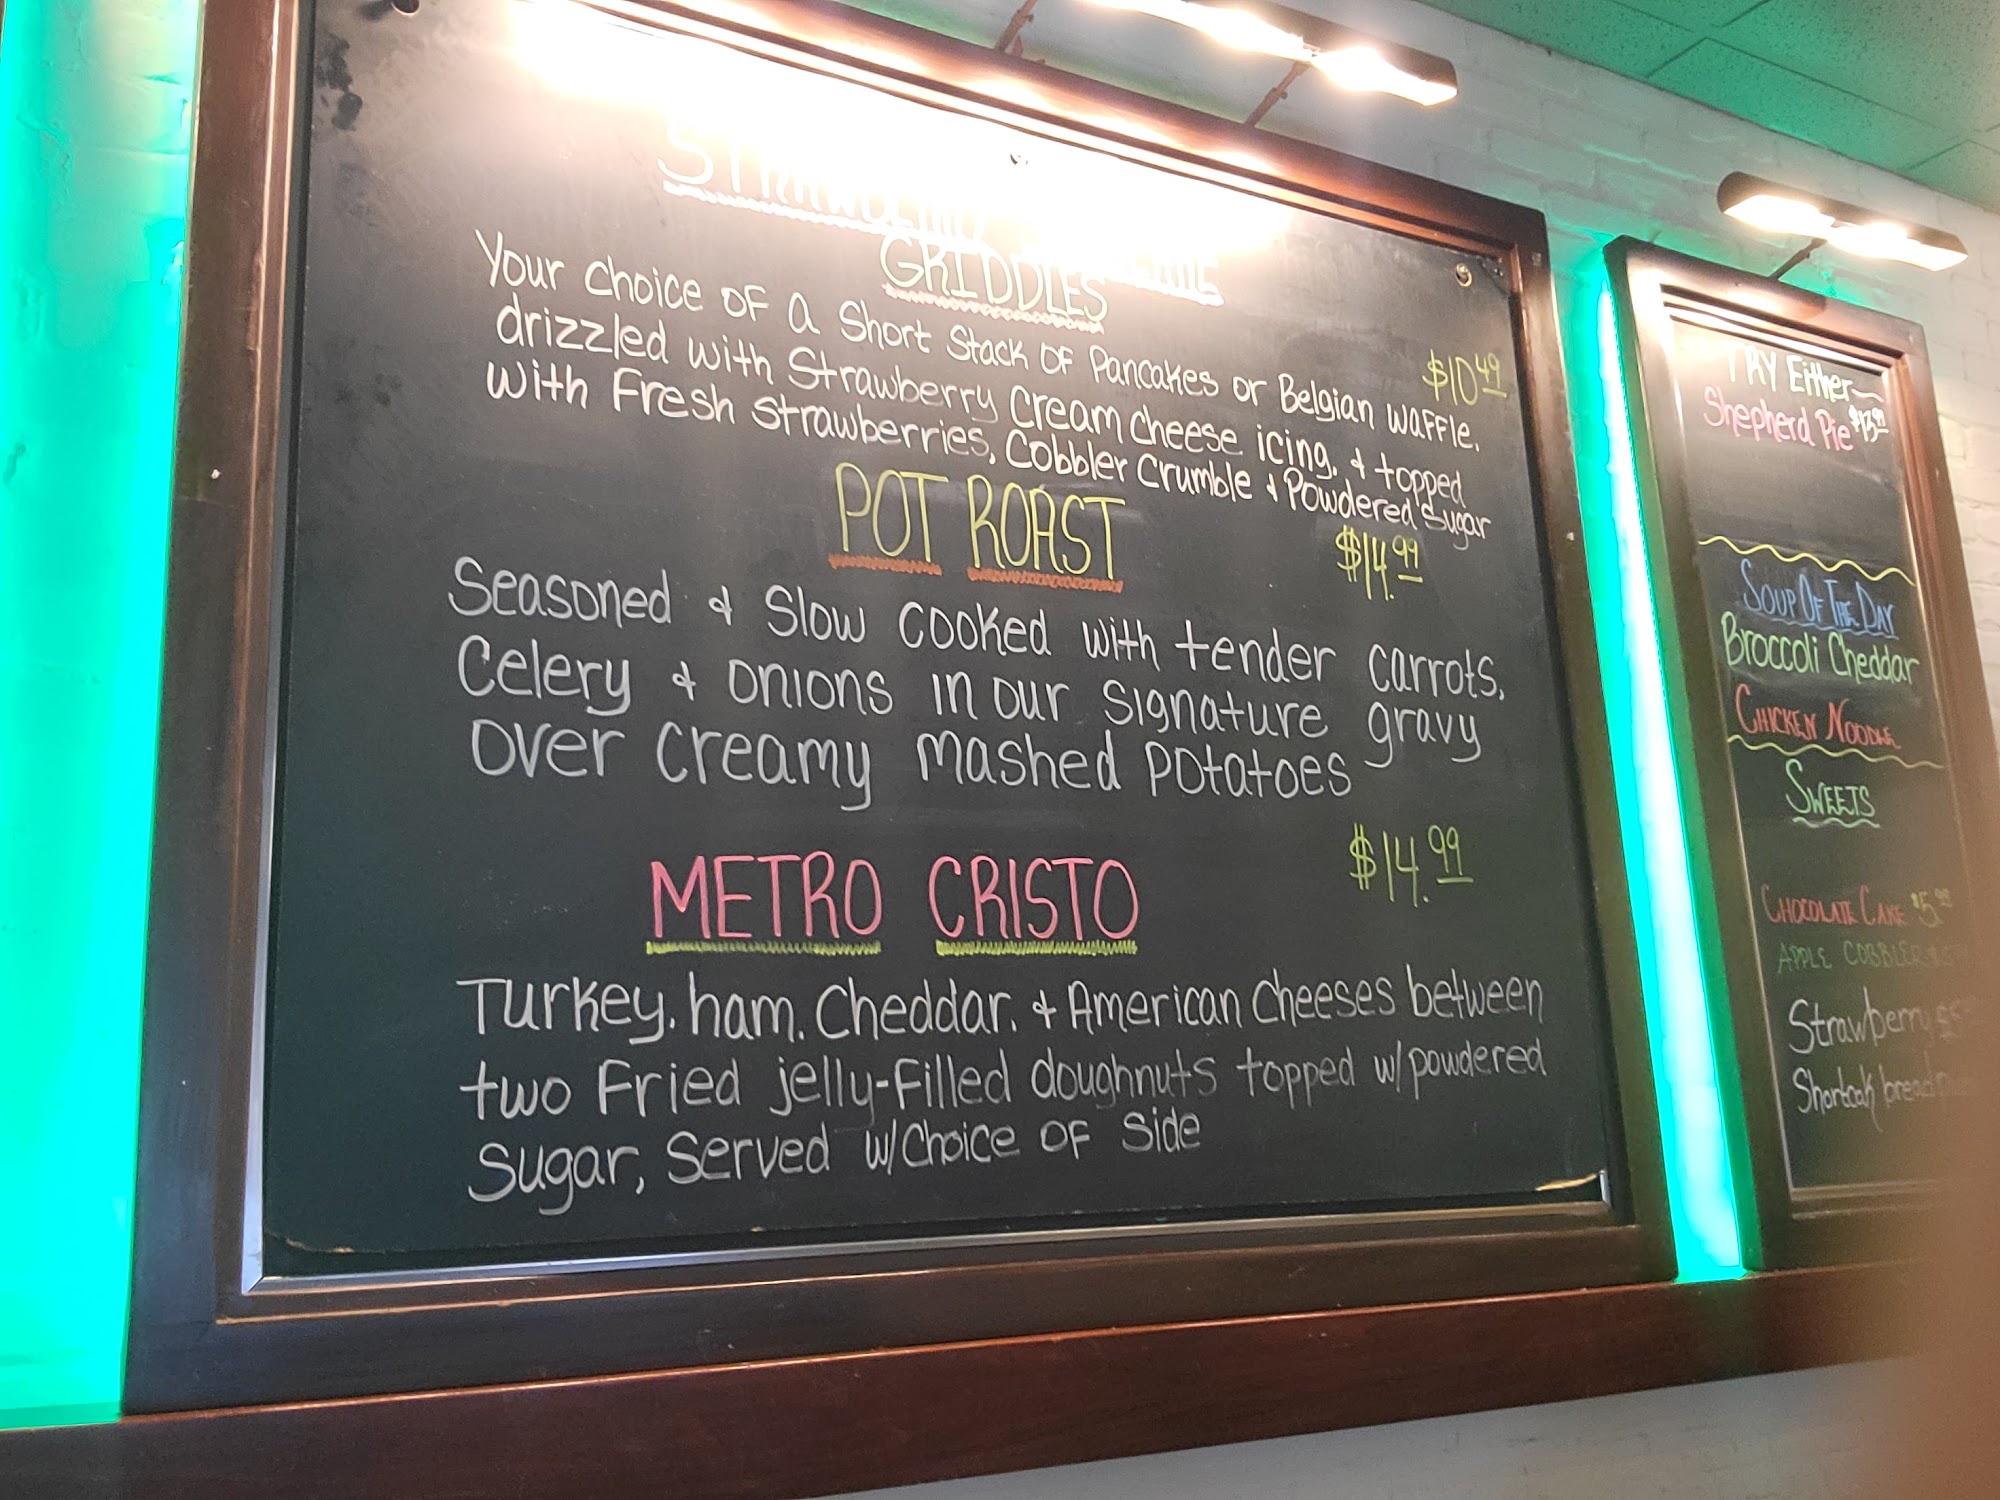 GRIDDLES
Your Choice OF a Short Stack OF Pancakes or Belgian Waffle. $10.49
drizzled with Strawberry Cream Cheese icing. & topped
with Fresh Strawberries, Cobbler Crumble & Powdered Sugar
POT ROAST $14.99
Seasoned & Slow Cooked with tender carrots,
Celery & onions in our signature gravy
over creamy mashed potatoes
METRO CRISTO $14.99
Turkey. ham. Cheddar. & American Cheeses between
two Fried jelly-Filled doughnuts topped w/powdered
Sugar, Served w/Choice of Side
TRY Either
Shepherd Pie $13.99
Soup Of The Day
Broccoli Cheddar
Chicken Noodle
Sweets
Chocolate Cake $5.99
Apple Cobbler
Strawberry